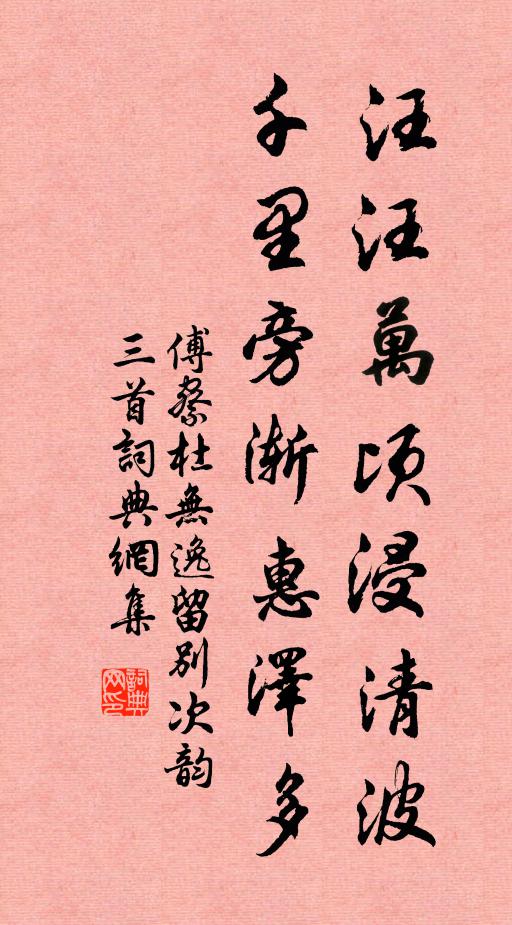 汪汪萬頃浸清波
千里旁漸惠澤多
傅察杜無逸留别次韵
三首詞典網集
詞典网印